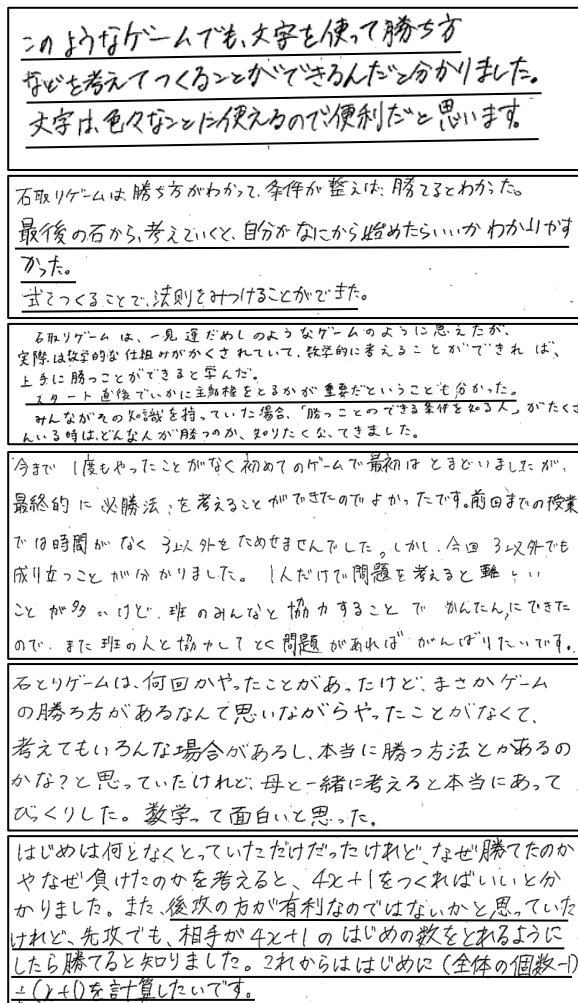 このようなゲームでも、文字を使って勝ち方
などを考えてつくることができるんだと分かりました。
文字は、色々なことに使えるので便利だと思います。
石取りゲームは、勝ち方がわかって、条件が整えば、勝てるとわかった。
最後の石から、考えていくと、自分がなにから始めたらいいかわかりやす
かった。
式をつくることで、法則をみつけることができた。
石取りゲームは、一見運だめしのようなゲームのように思えたが、
実際は数学的な仕組みがかくされていて、数学的に考えることができれば、
上手に勝つことができると学んだ。
スタート直後でいかに主動権をとるかが重要だということも分かった。
みんながその知識を持っていた場合、「勝つことのできる条件を知る人」がたくさ
んいる時は、どんな人が勝つのか、知りたくなってきました。
今まで1度もやったことがなく初めてのゲームで最初はとまどいましたが、
最終的に必勝法を考えることができたのでよかったです。前回までの授業
では時間がなく3以外をためせませんでした。しかし、今回3以外でも
成り立つことが分かりました。1人だけで問題を考えると難しい
ことが多いけど、班のみんなと協力することでかんたんにできた
ので、また班の人と協力してとく問題があればがんばりたいです。
石とりゲームは、何回かやったことがあったけど、まさかゲーム
の勝ち方があるなんて思いながらやったことがなくて、
考えてもいろんな場合があるし、本当に勝つ方法とかあるの
かな？と思っていたけれど、母と一緒に考えると本当にあって
びっくりした。数学って面白いと思った。
はじめは何となくとっていただけだったけれど、なぜ勝てたのか
やなぜ負けたのかを考えると、4x+1をつくればいいと分
かりました。また、後攻の方が有利なのではないかと思っていた
けれど、先攻でも、相手が4x+1のはじめの数をとれるように
したら勝てると知りました。これからははじめに(全体の個数-1)
÷(x+1)を計算したいです。